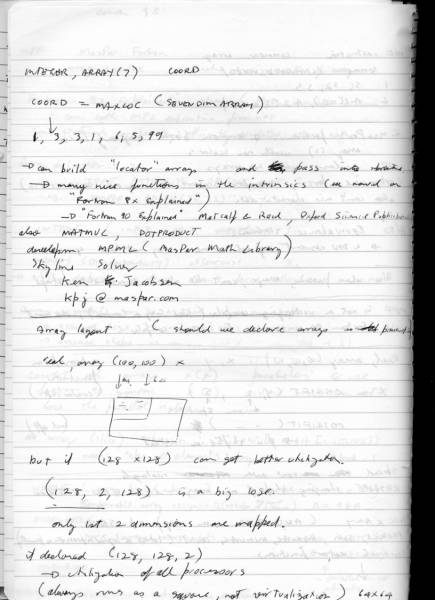 INTEGER, ARRAY(7) COORD
COORD = MAXLOC (SEVENDIMARRAY)
1, 3, 3, 1, 6, 5, 99
→ can build "locator" arrays and pass into
→ many nice functions in the intrinsics (
"Fortran 8x Explained")
→ "Fortran 90 Explained" Metcalf & Reid, Oxford Science Publications
also MATMUL, DOTPRODUCT
MPML (MasPar Math Library)
Skyline Solver
Ken Jacobsen
kpj @ maspar.com
Array layout (should we declare arrays
real, array (100,100) x
but if (128 x 128) can get better utilization.
(128, 2, 128) is a big lose.
only last 2 dimensions are mapped.
if declared (128, 128, 2)
→ utilization of all processors
(always runs as a square, not virtualization) 64x64